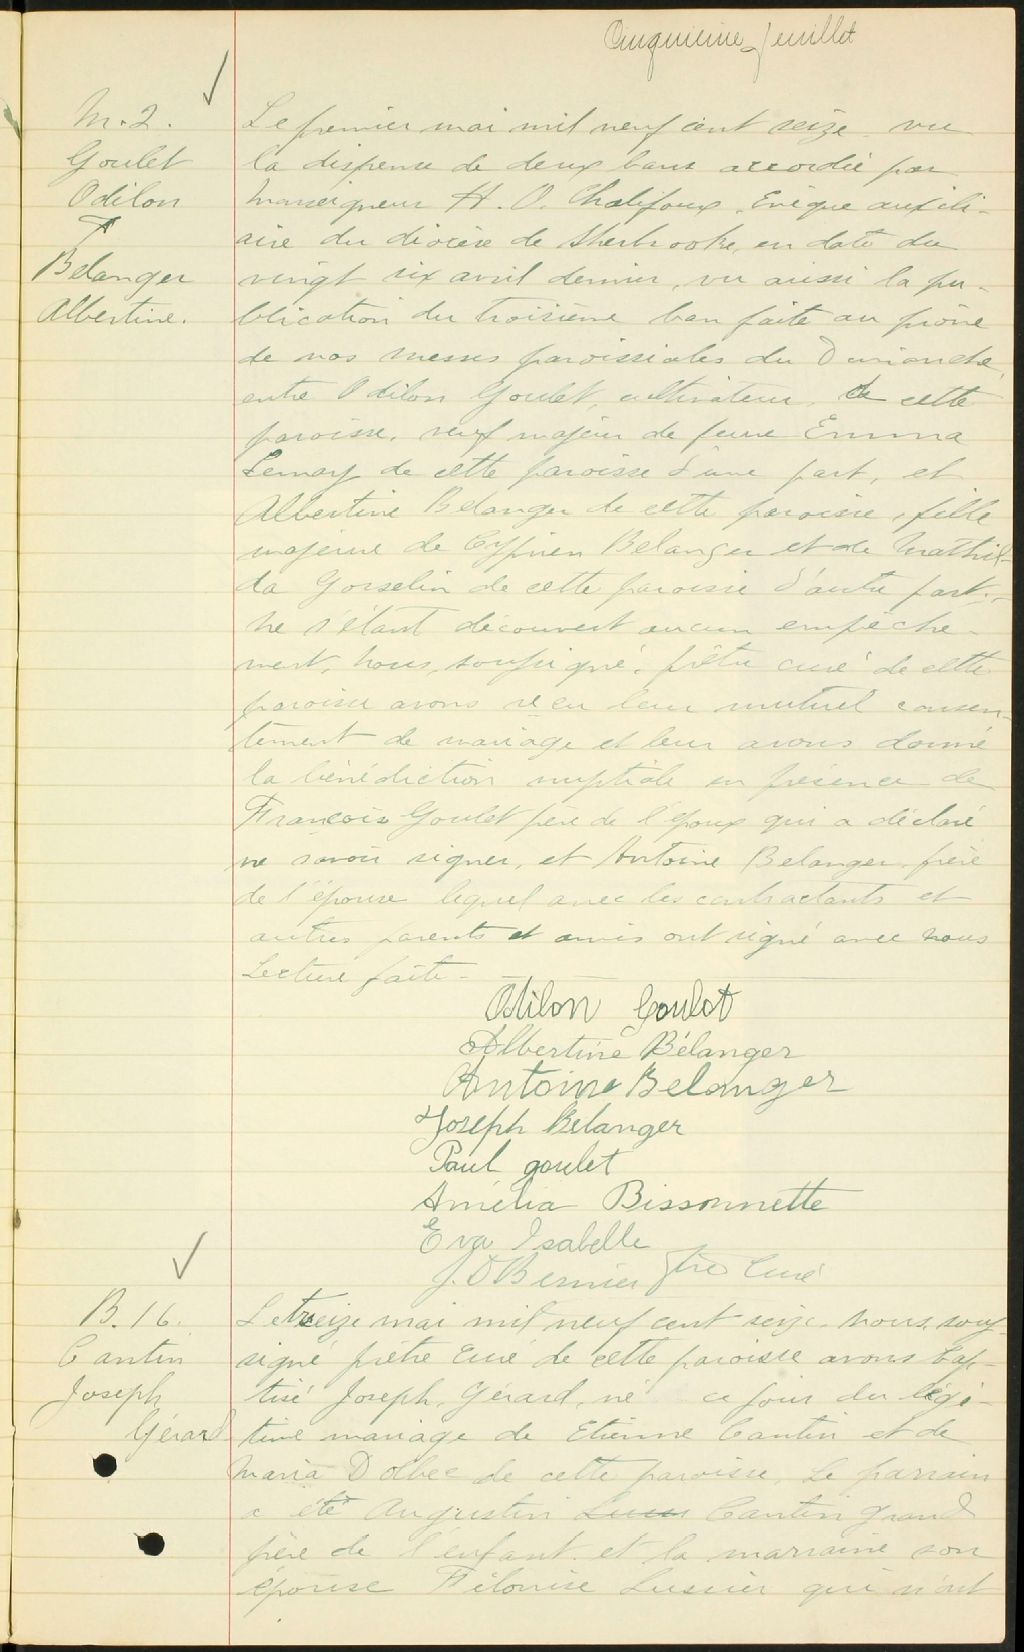 Cinquième feuillet
M. 2.
Goulet
Odilon
&
Belanger
Albertine.
Le premier mai mil neuf cent seize, vu
la dispense de deux bans accordée par
Monseigneur H. O. Chalifoux, Evêque auxili-
aire du diocèse de Sherbrooke, en date du
vingt six avril dernier, vu aussi la pu-
blication du troisième ban faite au prône
de nos messes paroissiales du Dimanche,
entre Odilon Goulet, cultivateur, de cette
paroisse, veuf majeur de feue Emma
Lemay de cette paroisse d'une part, et
Albertine Belanger de cette paroisse, fille
majeure de Cyprien Belanger et de Mathil-
da Gosselin de cette paroisse d'autre part;
ne s'étant découvert aucun empêche-
ment, nous, soussigné, prêtre curé de cette
paroisse avons reçu leur mutuel consen-
tement de mariage et leur avons donné
la bénédiction nuptiale en présence de
François Goulet père de l'époux qui a déclaré
ne savoir signer, et Antoine Belanger, frère
de l'épouse lequel avec les contractants et
autres parents et amis ont signé avec nous
Lecture faite -
Odilon Goulet
Albertine Bélanger
Antoine Belanger
Joseph Bélanger
Paul goulet
Amélia Bissonnette
Eva Isabelle
J. D Bernier Ptre Curé
B. 16.
Cantin
Joseph
Gérard
Le treize mai mil neuf cent seize, nous, sous-
signé prêtre curé de cette paroisse avons bap-
tisé Joseph, Gérard, né ce jour du légi-
time mariage de Etienne Cantin et de
Maria Dolbec de cette paroisse. Le parrain
a été Augustin Cantin grand
père de l'enfant et la marraine son
épouse Félonise Lussier qui n'ont